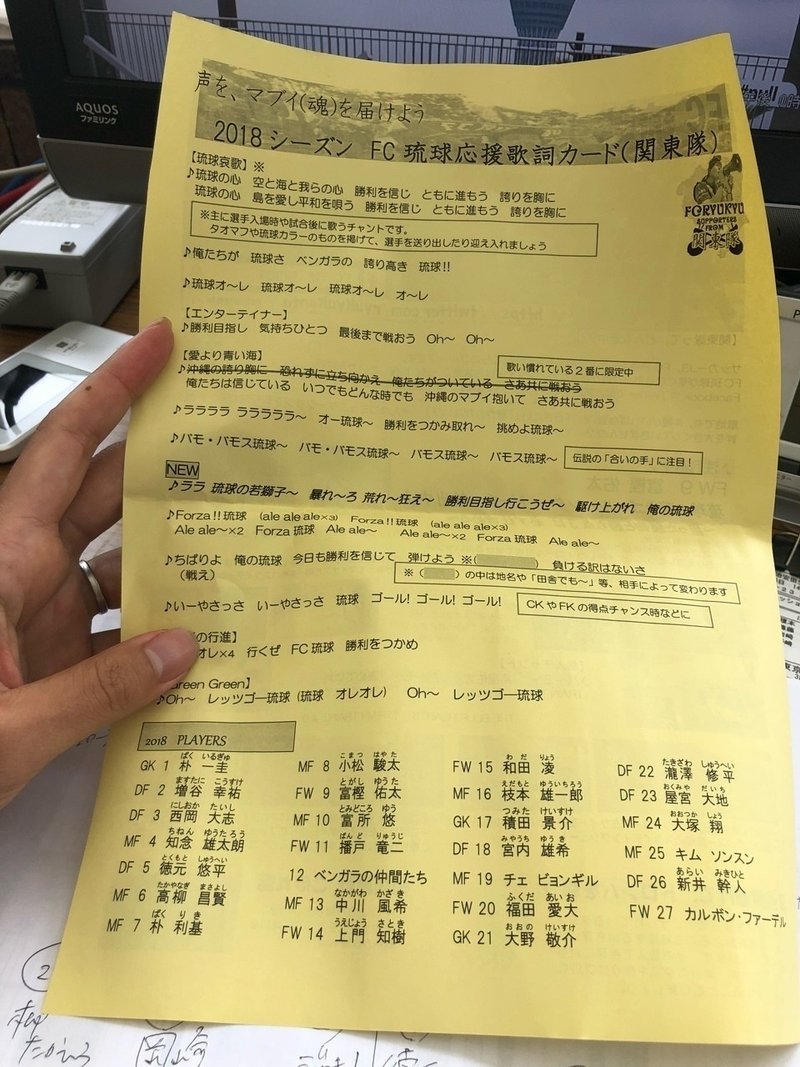 AQUOS
ファミリンク
声を、マブイ(魂)を届けよう
2018シーズン FC琉球応援歌詞カード(関東隊)
FC RYUKYU
SUPPORTERS
FROM
関東隊
【琉球哀歌】※
♪琉球の心 空と海と我らの心 勝利を信じ ともに進もう 誇りを胸に
琉球の心 島を愛し平和を唄う 勝利を信じ ともに進もう 誇りを胸に
※主に選手入場時や試合後に歌うチャントです。
タオマフや琉球カラーのものを掲げて、選手を送り出したり迎え入れましょう
♪俺たちが 琉球さ ベンガラの 誇り高き 琉球!!
♪琉球オ～レ 琉球オ～レ 琉球オ～レ オ～レ
【エンターテイナー】
♪勝利目指し 気持ちひとつ 最後まで戦おう Oh～ Oh～
【愛より青い海】
歌い慣れている2番に限定中
♪沖縄の誇り胸に 恐れずに立ち向かえ 俺たちがついている さあ共に戦おう
俺たちは信じている いつもどんな時でも 沖縄のマブイ抱いて さあ共に戦おう
♪ララララ ラララララ～ オー琉球～ 勝利をつかみ取れ～ 挑めよ琉球～
♪バモ・バモス琉球～ バモ・バモス琉球～ バモス琉球～ バモス琉球～
伝説の「合いの手」に注目!
NEW
♪ララ 琉球の若獅子～ 暴れ～ろ 荒れ～狂え～ 勝利目指し行こうぜ～ 駆け上がれ 俺の琉球
♪Forza!!琉球 (ale ale ale×3) Forza!!琉球 (ale ale ale×3)
Ale ale～×2 Forza琉球 Ale ale～ Ale ale～×2 Forza琉球 Ale ale～
♪ちばりよ 俺の琉球 今日も勝利を信じて 弾けよう ※( ) 負ける訳はないさ
(戦え)
※( )の中は地名や「田舎でも～」等、相手によって変わります
♪いーやさっさ いーやさっさ 琉球 ゴール!ゴール!ゴール!
CKやFKの得点チャンス時などに
の行進】
オレ×4 行くぜ FC琉球 勝利をつかめ
Green Green】
♪Oh～ レッツゴー琉球(琉球 オレオレ) Oh～ レッツゴー琉球
2018 PLAYERS
GK 1 朴 一圭 ぱく いるぎゅ
DF 2 増谷 幸祐 ますたに こうすけ
DF 3 西岡 大志 にしおか たいし
MF 4 知念 雄太朗 ちねん ゆうたろう
DF 5 徳元 悠平 とくもと しゅうへい
MF 6 高柳 昌賢 たかやなぎ まさよし
MF 7 朴 利基 ぱく りき
MF 8 小松 駿太 こまつ はやた
FW 9 富樫 佑太 とがし ゆうた
MF 10 富所 悠 とみどころ ゆう
FW 11 播戸 竜二 ばんど りゅうじ
12 ベンガラの仲間たち
MF 13 中川 風希 なかがわ かざき
FW 14 上門 知樹 うえじょう さとき
FW 15 和田 凌 わだ りょう
MF 16 枝本 雄一郎 えだもと ゆういちろう
GK 17 積田 景介 つみた けいすけ
DF 18 宮内 雄希 みやうち ゆうき
MF 19 チェ ビョンギル
FW 20 福田 愛大 ふくだ あいお
GK 21 大野 敬介 おおの けいすけ
DF 22 瀧澤 修平 たきざわ しゅうへい
DF 23 屋宮 大地 おくみや だいち
MF 24 大塚 翔 おおつか しょう
MF 25 キム ソンスン
DF 26 新井 幹人 あらい みきひと
FW 27 カルボン・ファーデル